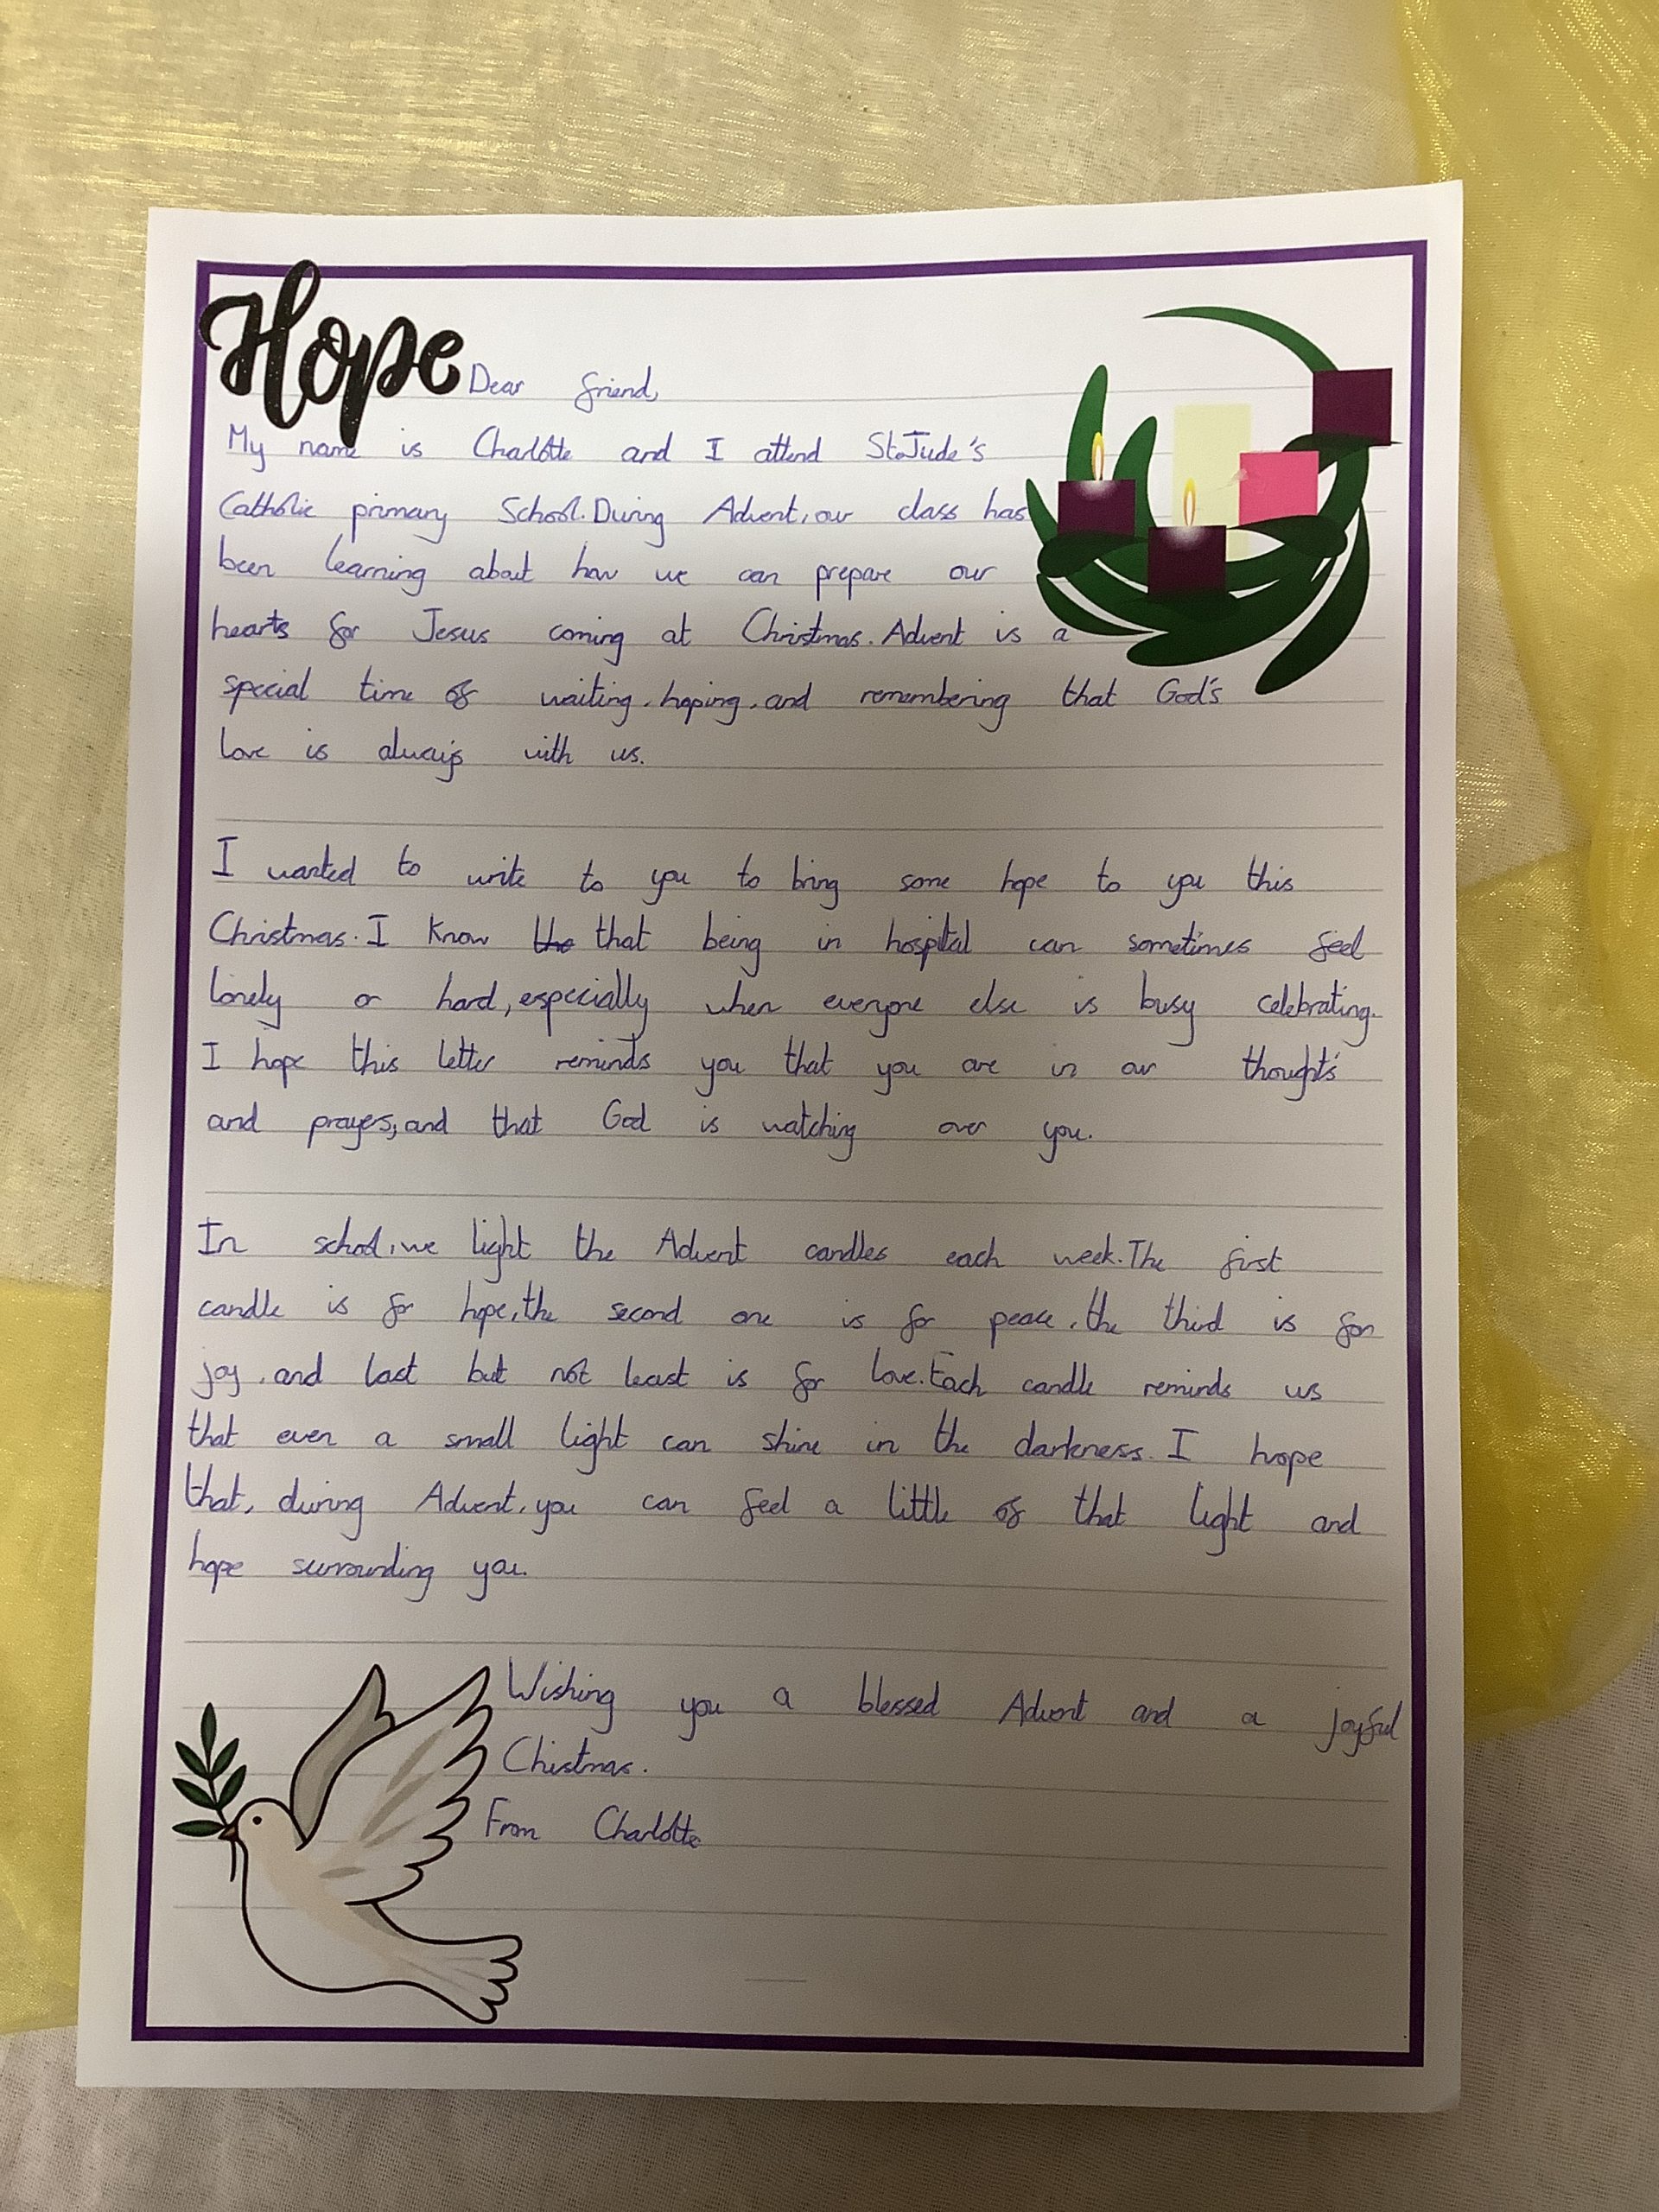 Hope
Dear friend,
My name is Charlotte and I attend St.Jude's
Catholic primary School. During Advent, our class has
been learning about how we can prepare our
hearts for Jesus coming at Christmas. Advent is a
special time of waiting, hoping, and remembering that God's
love is always with us.
I wanted to write to you to bring some hope to you this
Christmas. I know the that being in hospital can sometimes feel
lonely or hard, especially when everyone else is busy celebrating.
I hope this letter reminds you that you are in our thought's
and prayes, and that God is watching over you.
In school, we light the Advent candles each week. The first
candle is for hope, the second one is for peace, the third is for
joy, and last but not least is for love. Each candle reminds us
that even a small light can shine in the darkness. I hope
that, during Advent, you can feel a little of that light and
hope surrounding you.
Wishing you a blessed Advent and a joyful
Chistmas.
From Charlotte